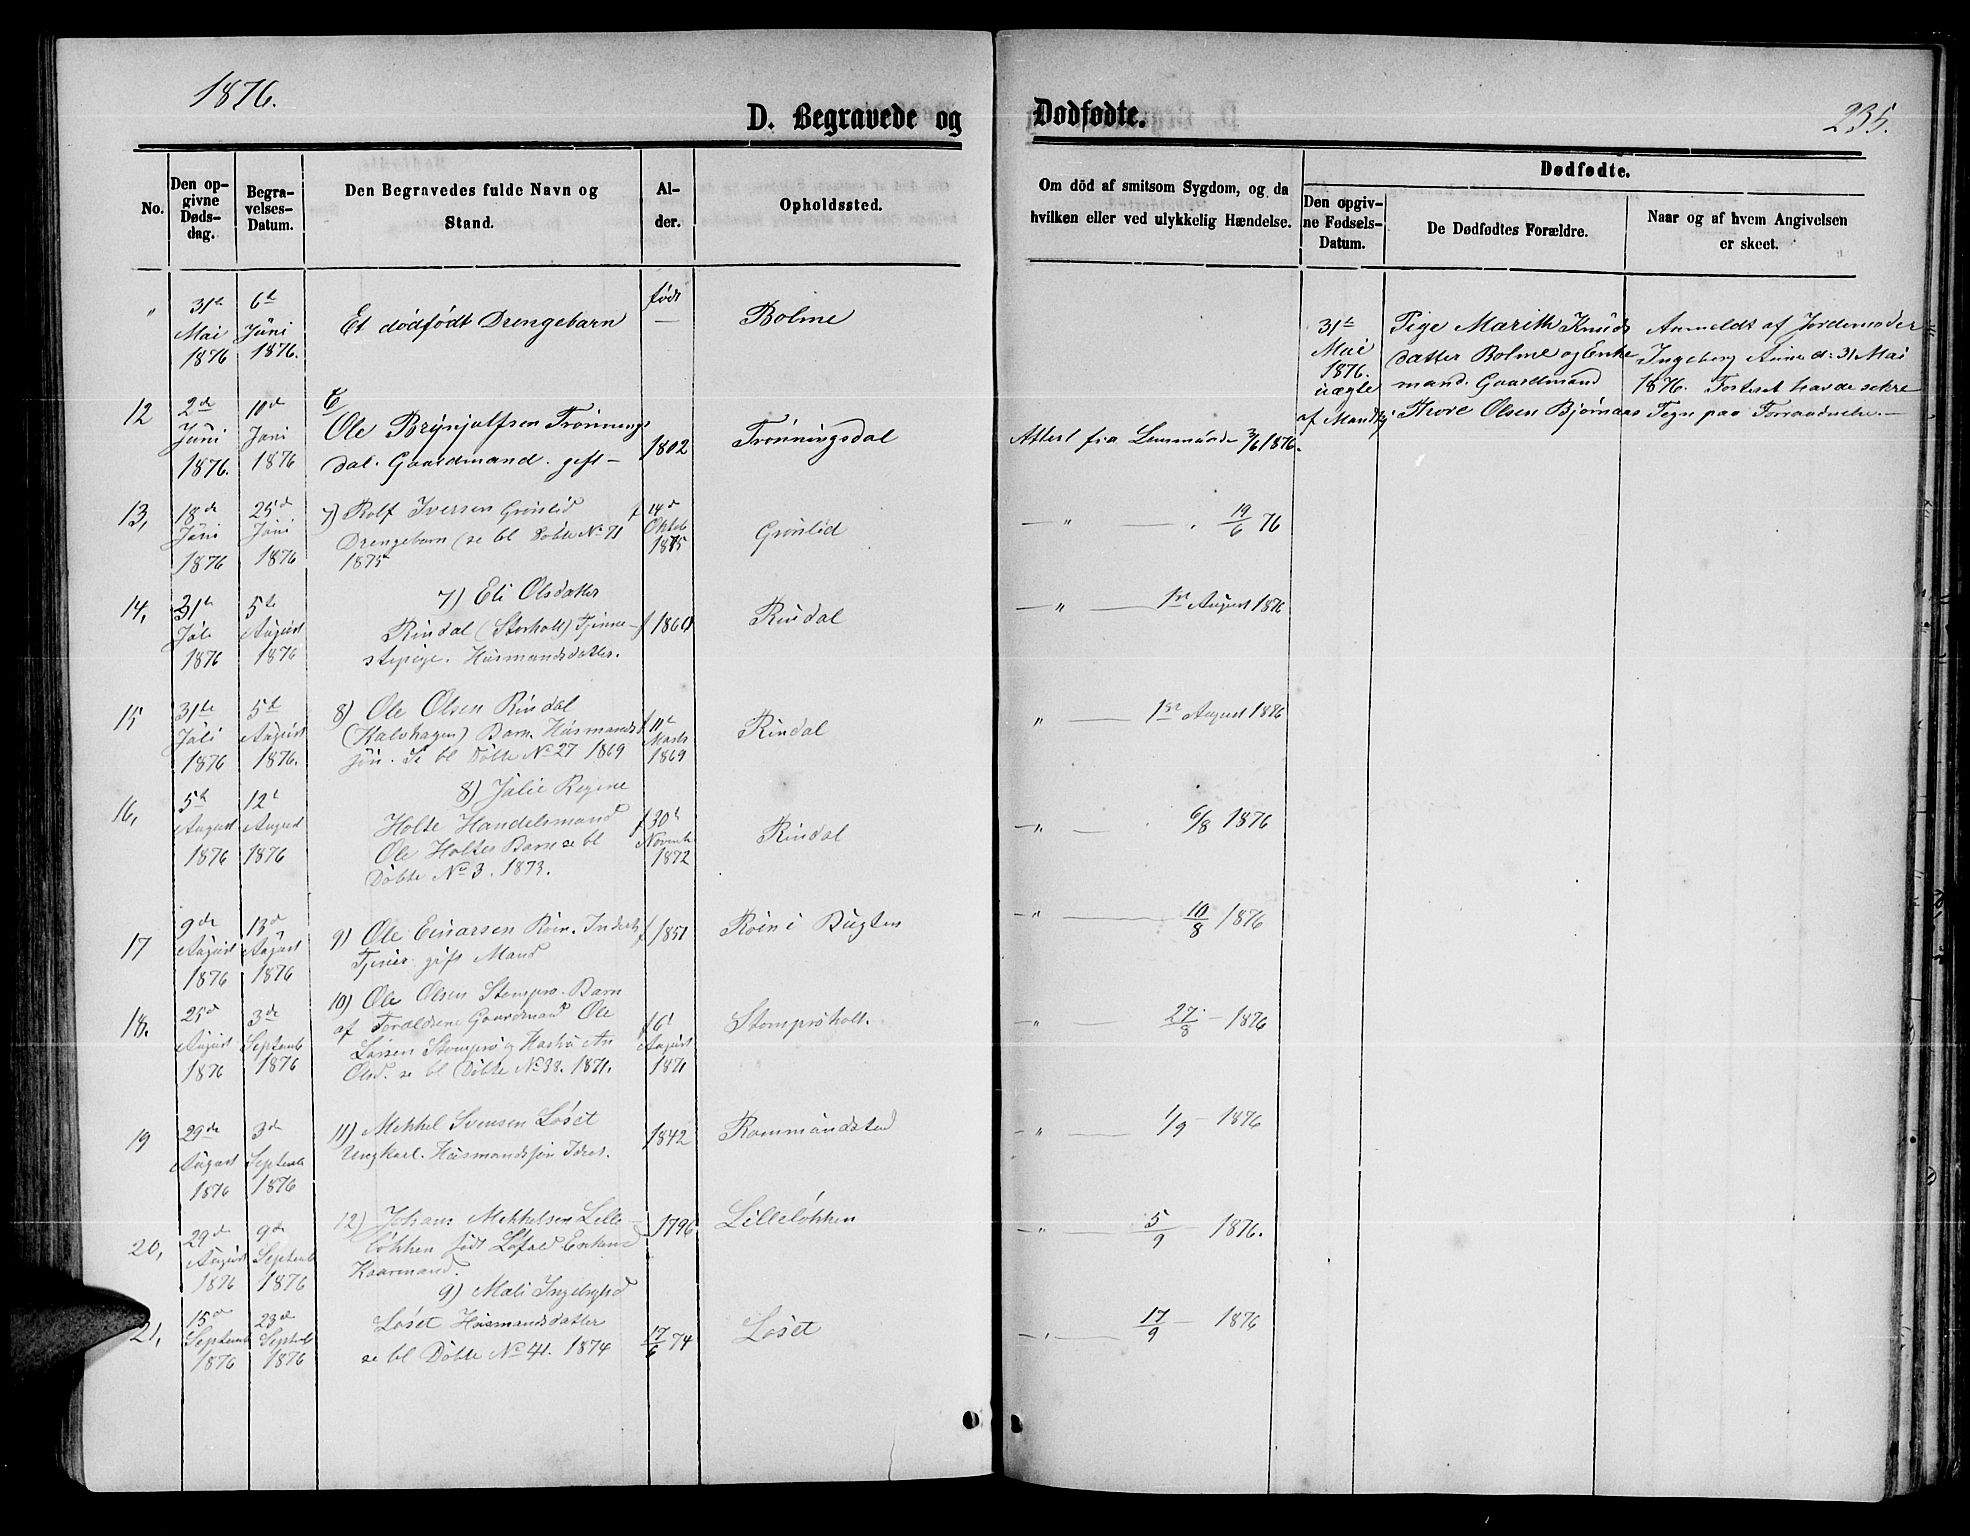 1876.
D. Begravede og Dødfødte.
235.
No.
Den opgivne Dødsdag.
Begravelses-Datum.
Den Begravedes fulde Navn og Stand.
Alder.
Opholdssted.
Om död af smitsom Sygdom, og da hvilken eller ved ulykkelig Hændelse.
Dødfødte.
Den opgivne Fødsels-Datum.
De Dødfødtes Forældre.
Naar og af hvem Angivelsen er skeet.
" 31te Mai 1876 6te Juni 1876. Et dødfødt Drengebarn født — Bolme
31te Mai 1876. uægte af Mandkj
Pige Marith Knuds
datter Bolme og Enke
mand. Gaardmand
Thore Olsen Bjørnaas
Anmeldt af Jordemoder
Ingeborg Anne d: 31 Mai
1876. Fosteret havde sikre
Tegn paa Forraadnelse.
12 2de Juni 1876. 10de Juni 1876
6
Ole Brynjulfsen Trønnings
dal. Gaardmand. gift — 1802 Trønningsdal
Attest fra 2/6 1876.
13, 18de Juni 1876 25de Juni 1876
7) Rolf Iversen Grønlid
Drengebarn (se bl Døbte No 71
1875 f 14de Oktob 1875 Grønlid
—"— 19/6 76
14, 31te Juli 1876 5te August 1876
7) Eli Olsdatter
Rindal (Storholt) Tjene-
stepige. Husmandsdatter. f 1860 Rindal
—"— 1ste August 1876
15 31te Juli 1876 5te August 1876.
8) Ole Olsen Rindal
(Kalvhagen) Barn. Husmands
søn. Se bl Døbte No 27 1869 f 11te Marts 1869 Rindal
"— 1ste August 1876
16, 5te August 1876 12te August 1876
8) Julie Regine
Holte Handelsmand
Ole Holtes Barn se bl
Døbte No 3. 1873. f 30te Novemb 1872 Rindal
—"— 6/8 1876
17 9de August 1876 13de August 1876
9) Ole Einarsen Røin. Inderst
Tjener. gift Mand f 1851 Røin i Bugten
—"— 10/8 1876
18. 25de August 1876 3de Septemb 1876
10) Ole Olsen Stomprø. Barn
af Forældrene Gaardmand Ole
Larsen Stomprø og
Olsd. se bl Døbte No 38. 1871. f 6te August 1871 Stomprøholt.
—"— 27/8 — 1876
19 29de August 1876 3de Septemb 1876
11) Mekkel Svensen Løset
Ungkarl. Husmandssøn 1842 Rommundstad
—"— 1/9 — 1876
20, 29de August 1876 9de Septemb 1876
12) Johans Mekkelsen Lille-
løkken født Løfald Enkemd
Kaarmand. 1796 Lilleløkken
—"— 5/9 — 1876.
21, 15de Septemb 1876 23de Septbr 1876
9) Mali Ingebrgtsd
Løset Husmandsdatter
se bl Døbte No 41. 1874 17/6 74 Løset
—"— 17/9 — 1876